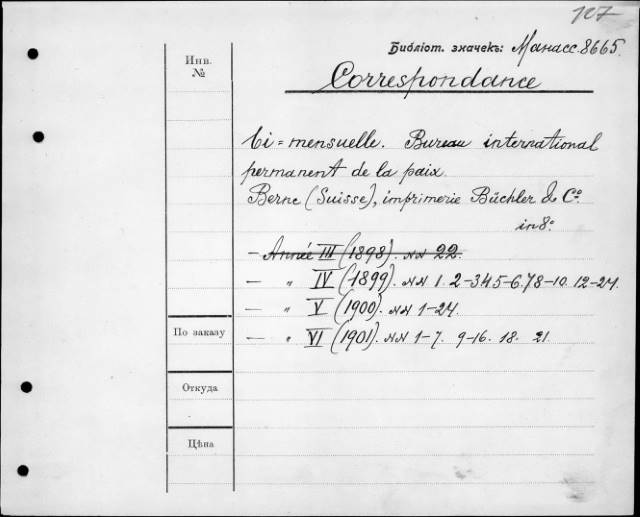 107
Библіот. значекъ: Манасс. 8665.
Инв. №
Correspondance
bi=mensuelle. Bureau international
permanent de la paix
Berne (Suisse), imprimerie Büchler & Cº
in 8º
- Année III (1898). NN 22.
- " IV (1899). NN 1. 2-345-6.78-10. 12-24.
- " V (1900). NN 1-24.
По заказу
- " VI (1901). NN 1-7. 9-16. 18. 21.
Откуда
Цѣна